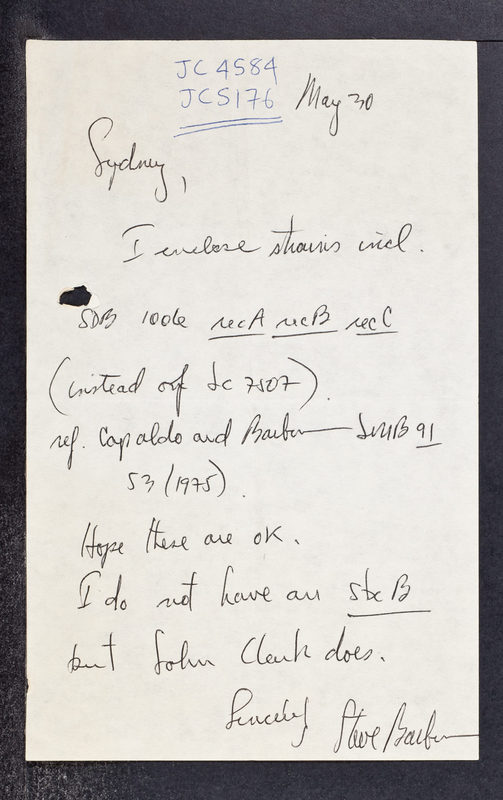 JC 4584
JC5176
May 30
Sydney,
I enclose strains incl.
SDB 100 recA recB recC
(instead of Jc 7507).
ref. Capaldo and Barbour JMB 91
53 (1975).
Hope these are OK.
I do not have an sbcB
but John Clark does.
Sincerely
Steve Barbour